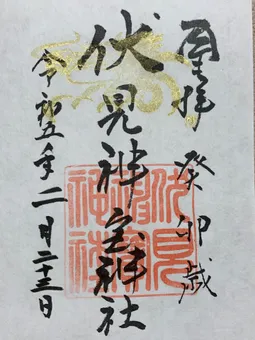 拝
癸卯歳
伏見神宝神社
令和五年二月二十三日
伏見
神寶
神社